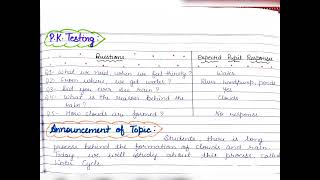 P.K. Testing:
Questions Expected Pupil Responses
Q1- What we need when we feel thirsty? Water
Q2- From where, we get water? River, handpump, ponds
Q3- Did you ever see rain? Yes
Q4- What is the reason behind the rain? Clouds
Q5- How clouds are formed? No response
Announcement of Topic:
Students there is long
process behind the formation of clouds and rain.
Today we will study about this process called
Water Cycle